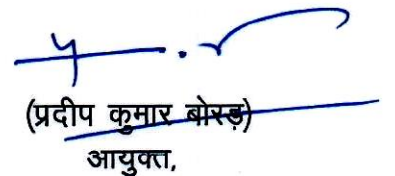 (प्रदीप कुमार बोरड़)
आयुक्त,